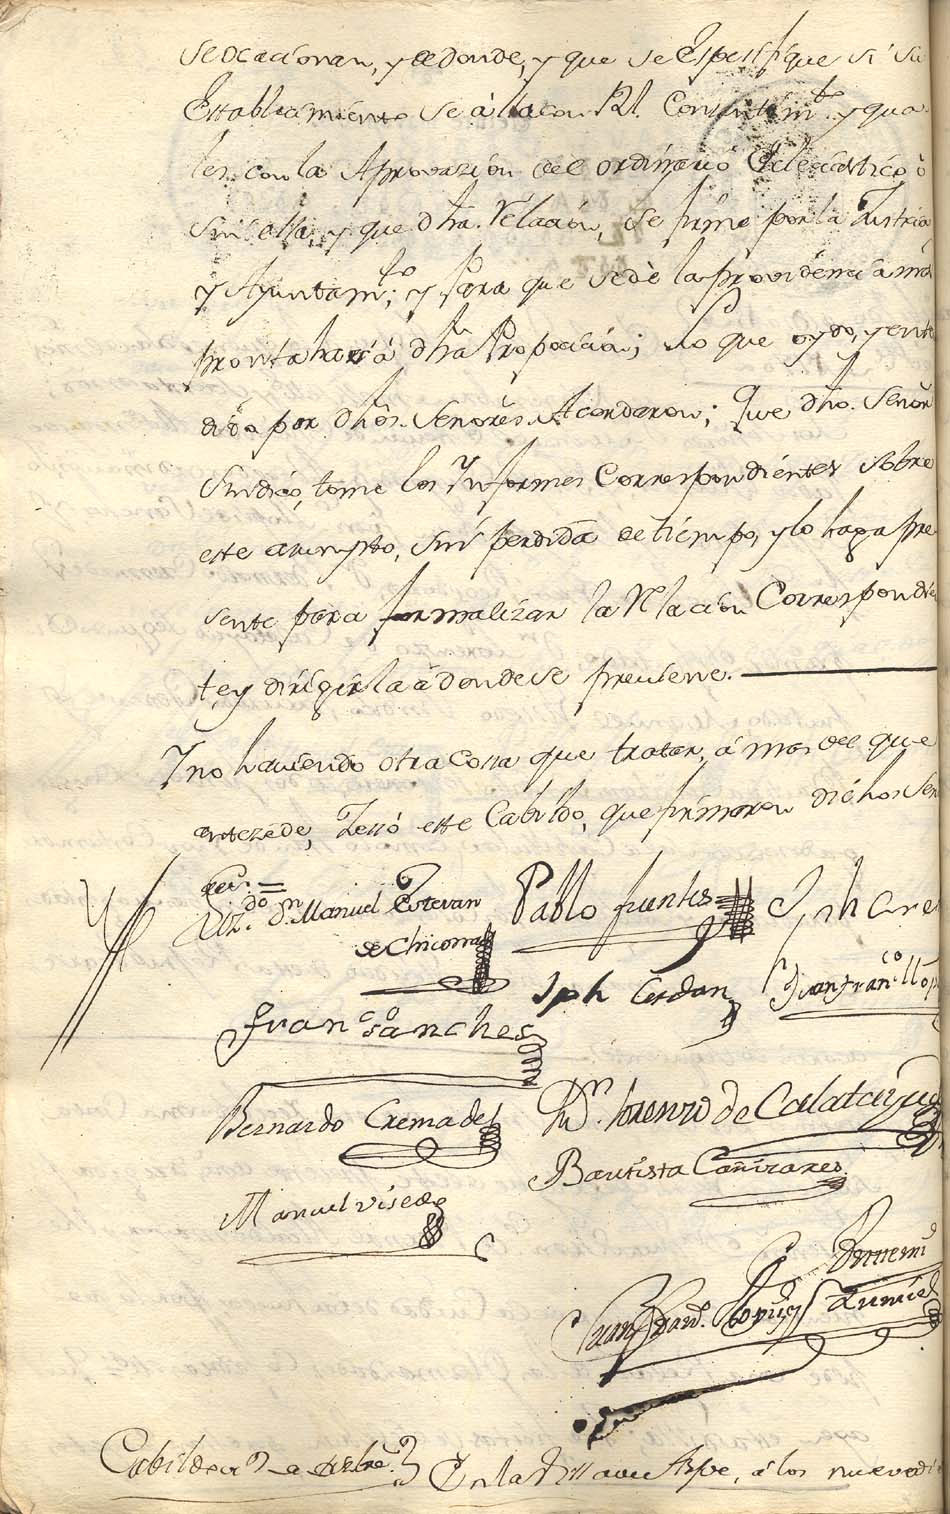 se ocacionan, y de donde, y que se Espesifique si su
Establecimiento se á la con Rl. Consentimto. y qua
les con la Aprovazion del ordinario Eclesiastico ô
sin ella, y que dha. Relacion, se firme por la Justicia
y Ayuntamto.; y Para que se dè la providencia mas
pronta hará dha Proposicion; lo que oydo, y enten
dido por dhos. Señores Acordaron; Que dho. Señor
Sindico, tome los Ynformes Correspondientes sobre
este asumpto, sin perdida de tiempo, y lo haga pre
sente para formalizar la Relacion Correspondien
te, y dirigirla â donde se previene.
Y no haviendo otra cossa que tratar, á mas del que
antezede, Zessó este Cabildo, que firmaron dichos Señ
res. =
Lizdo. Dn. Manuel Estevan
de Chicorra
Pablo fuentes
Jph Cre
Franco Sanches
Jph Cerdan
Juan franco. llop
Bernardo Cremades
Dn. lorenzo de Calatayud
Bautista Cañizares
Manuel visedo
Antemi
Cabildo de 9 de
En la Villa de Aspe, á los nueve di